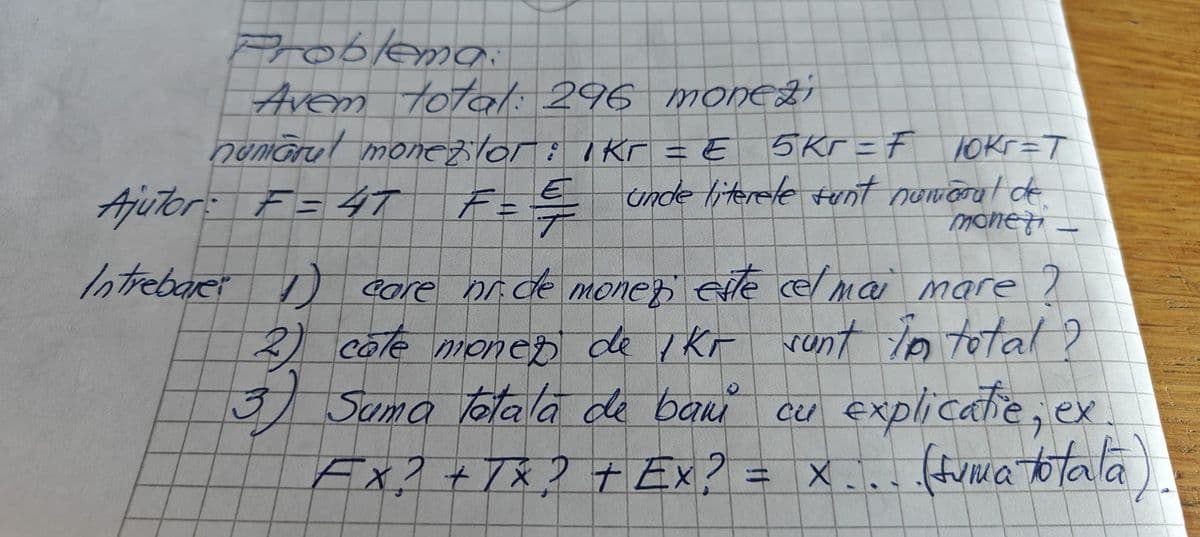 Problema:
Avem total: 296 monezi
numărul monezilor: 1Kr = E 5Kr = F 10Kr = T
Ajutor: F = 4T F = E/T unde literele sunt numărul de
monezi -
Intrebare: 1) care nr. de monezi este cel mai mare ?
2) câte monezi de 1Kr sunt în total ?
3) Suma totală de bani cu explicatie; ex.
Fx? + Tx? + Ex? = x.... (suma totală).